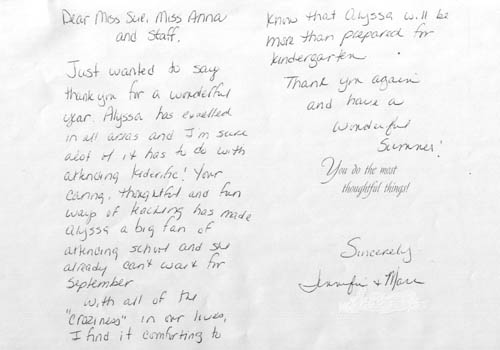 Dear Miss Sue, Miss Anna
and Staff,
Just wanted to say
thank you for a wonderful
year. Alyssa has excelled
in all areas and I'm sure
alot of it has to do with
attending Kiderific! Your
caring, thoughtful and fun
ways of teaching has made
Alyssa a big fan of
attending school and she
already can't wait for
September
With all of the
"craziness" in our lives,
I find it comforting to
know that Alyssa will be
more than prepared for
kindergarten.
Thank you again
and have a
wonderful
Summer!
You do the most
thoughtful things!
Sincerely,
Jennifer + Marc